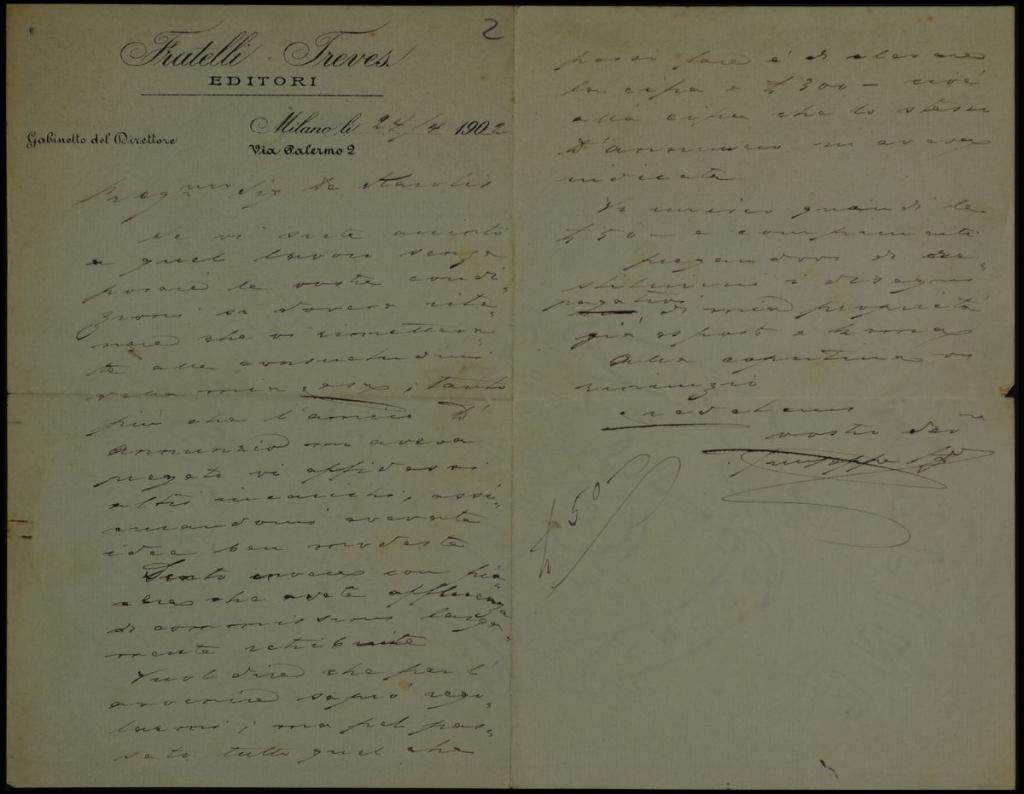 2
Fratelli Treves
EDITORI
Gabinetto del Direttore
Milano li 24/4 1902
Via Palermo 2
Preg.mo Sig De Karolis
Se vi siete accinto
a quel lavoro senza
posare le vostre condi-
zioni si doveva rite-
nere che vi rimettera-
te alle consuetudini
della mia casa, tanto
più che l'amico D'
Annunzio mi aveva
pregato vi affidassi
altri incarichi, assi-
curandomi avevate
idee ben modeste
Sento invece con pia-
cere che avete affluenza
di commissioni larga-
mente retribuite
Vuol dire che per l'
avvenire saprò rego-
larmi; ma pel pas-
sato tutto quel che
posso fare è di elevare
la cifra a £300 - cioè
alla cifra che lo stesso
D'Annunzio mi aveva
indicata
Vi unisco quindi le
£50 - a compimento
pregandovi di re-
stituirmi i disegni
pagativi di mia proprietà
già esposti a
Alla copertina vi
rinunzio
credetemi
vostro dev
£ 50